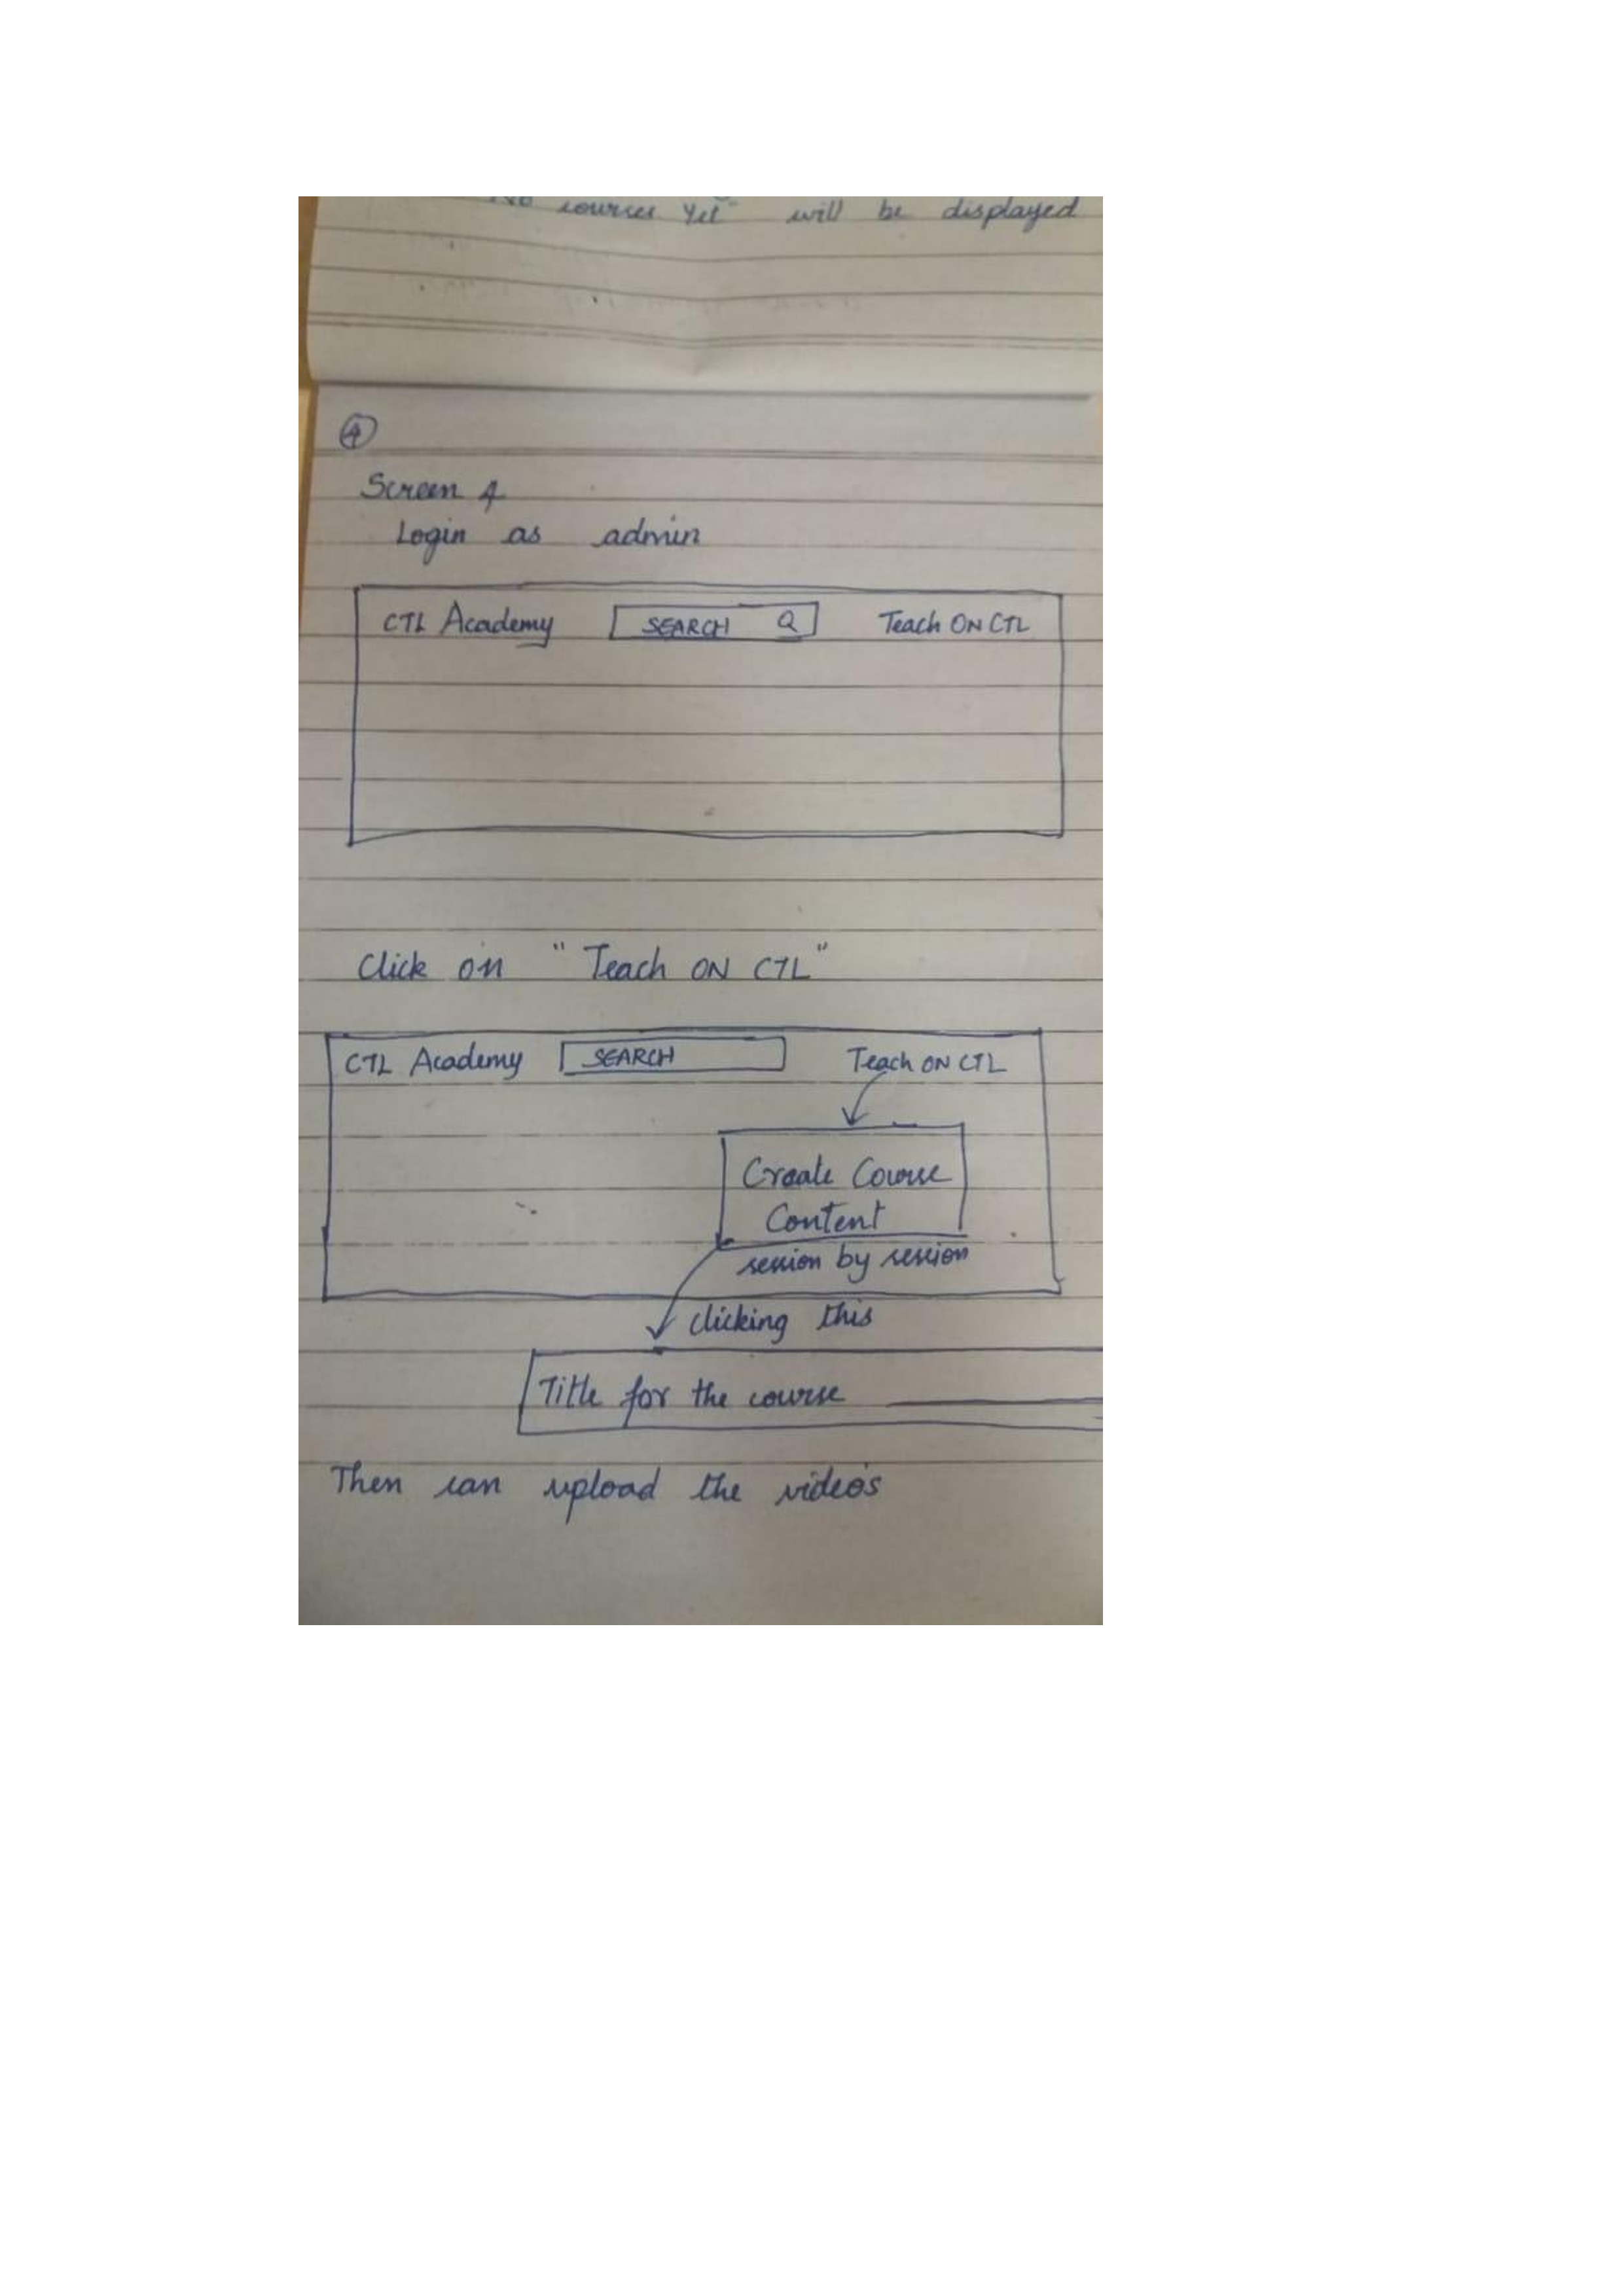 "No courses Yet" will be displayed
4
Screen 4
Login as admin
CTL Academy SEARCH Teach ON CTL
Click on "Teach ON CTL"
CTL Academy SEARCH Teach ON CTL
Create Course
Content
session by session
clicking this
Title for the course
Then can upload the videos